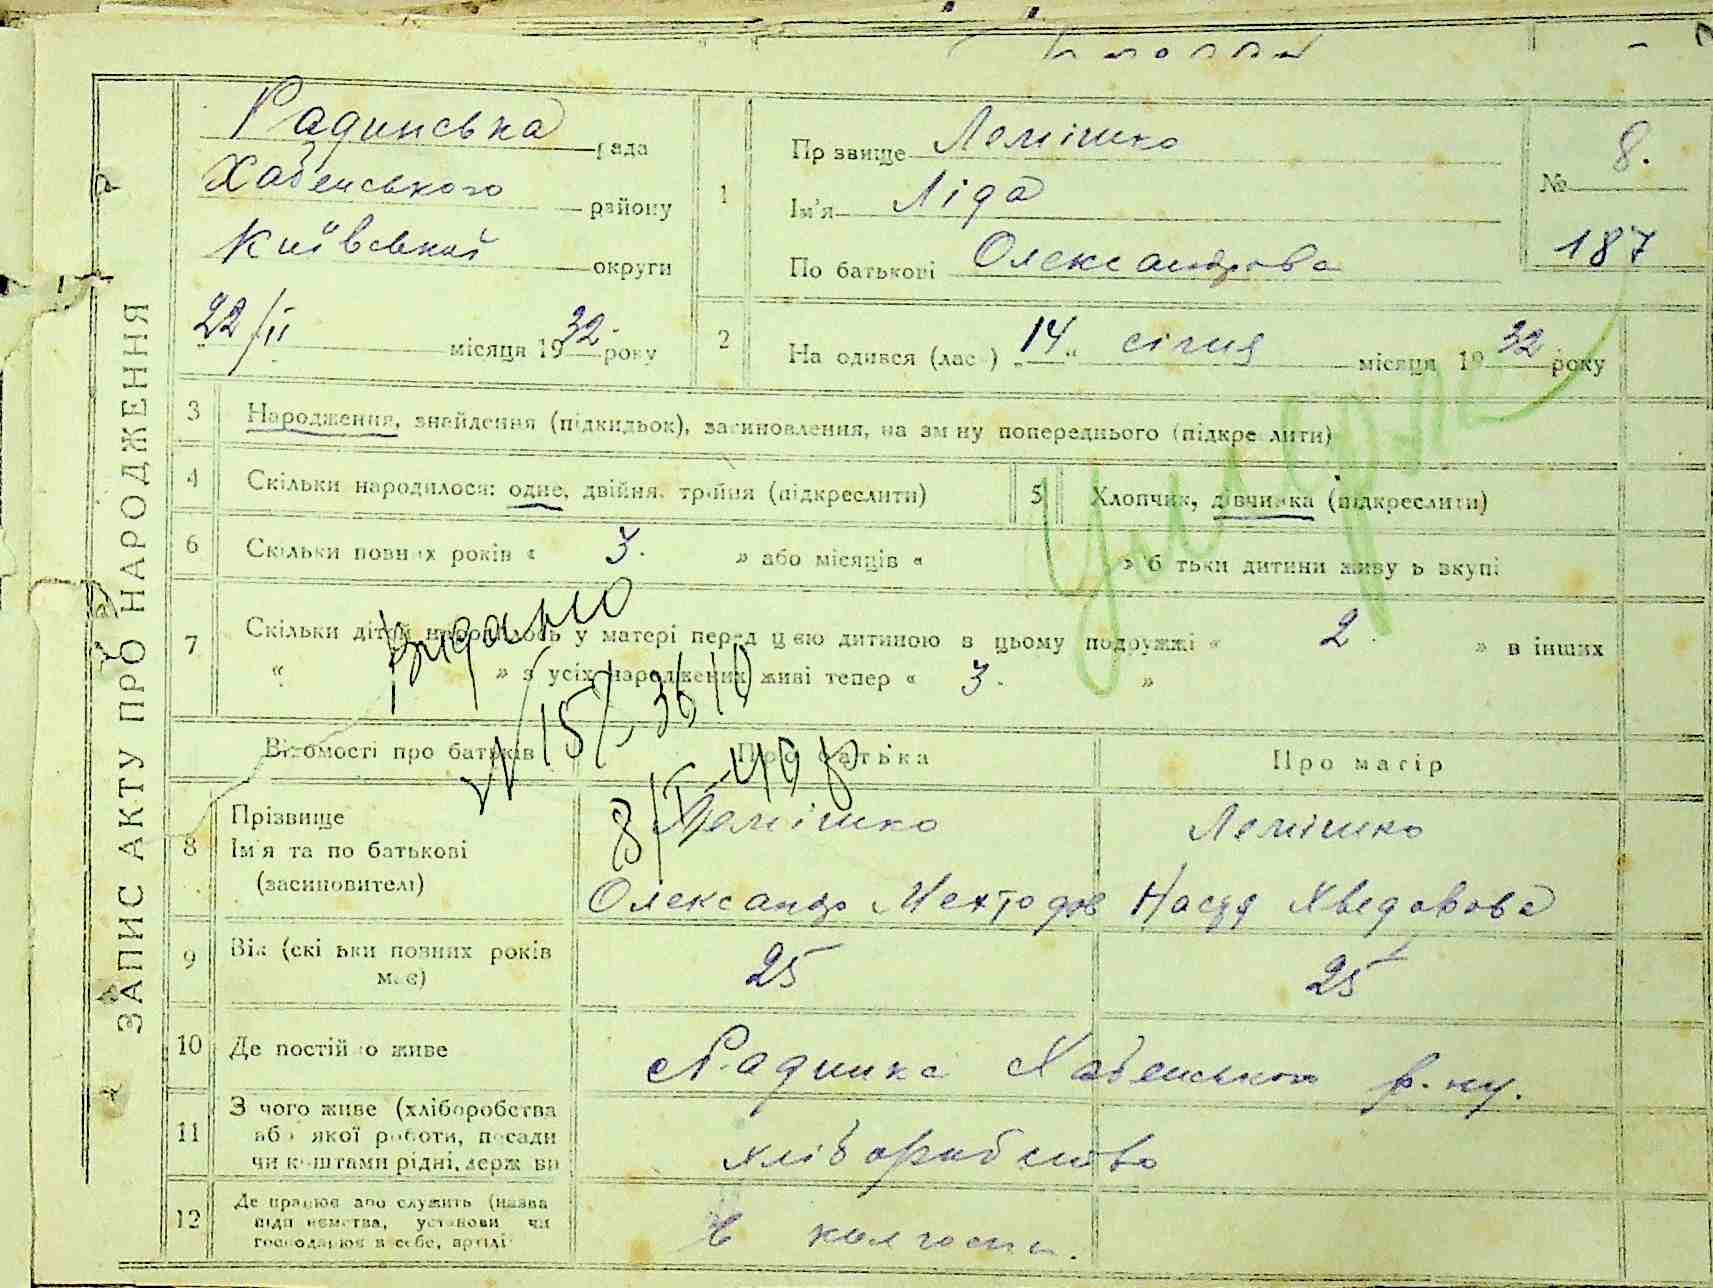 ЗАПИС АКТУ ПРО НАРОДЖЕННЯ
Радинська рада
Хабенського району
Київської округи
22/II місяця 1932 року
1
Прзвище Лемішко
Ім'я Ліда
По батькові Олександрова
№ 8.
187
2
На одився (лас ) „14“ січня місяця 1932 року
3 Народження, знайдення (підкидьок), засиновлення, на зм ну попереднього (підкре лити)
4 Скільки народилося: одне, двійня, трійня (підкреслити)
5 Хлопчик, дівчинка (підкреслити)
умерла
6 Скільки повних років « 3. » або місяців « » б тьки дитини живу ь вкупі
7 Скільки дітей народилось у матері перед цією дитиною в цьому подружжі « 2. » в інших
« » з усіх народжених живі тепер « 3. »
Видано
8/II 40 р
Відомості про батьків
Про батька
Про матір
8
Прізвище
Ім'я та по батькові
(засиновителі)
Лемішко
Олександр Мехтодов
Лемішко
Настя Хведорова
9 Вік (скі ьки повних років має)
25
25
10 Де постій о живе
Радинка Хабенського р-ну.
11
З чого живе (хліборобства
або якої роботи, посади
чи коштами рідні, держ ви
хліборобство
12
Де працює або служить (назва
підп иємства, установи чи
господарює в себе, артілі
в колгоспі.